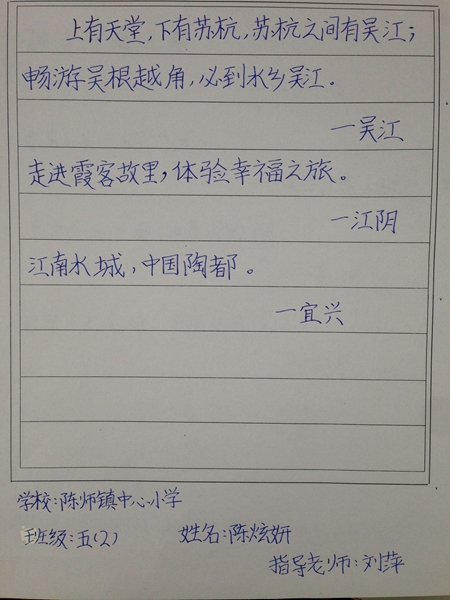 上有天堂，下有苏杭，苏杭之间有吴江；
畅游吴根越角，必到水乡吴江。
—吴江
走进霞客故里，体验幸福之旅。
—江阴
江南水城，中国陶都。
—宜兴
学校：陈师镇中心小学
班级：五（2） 姓名：陈炫妍
指导老师：刘萍